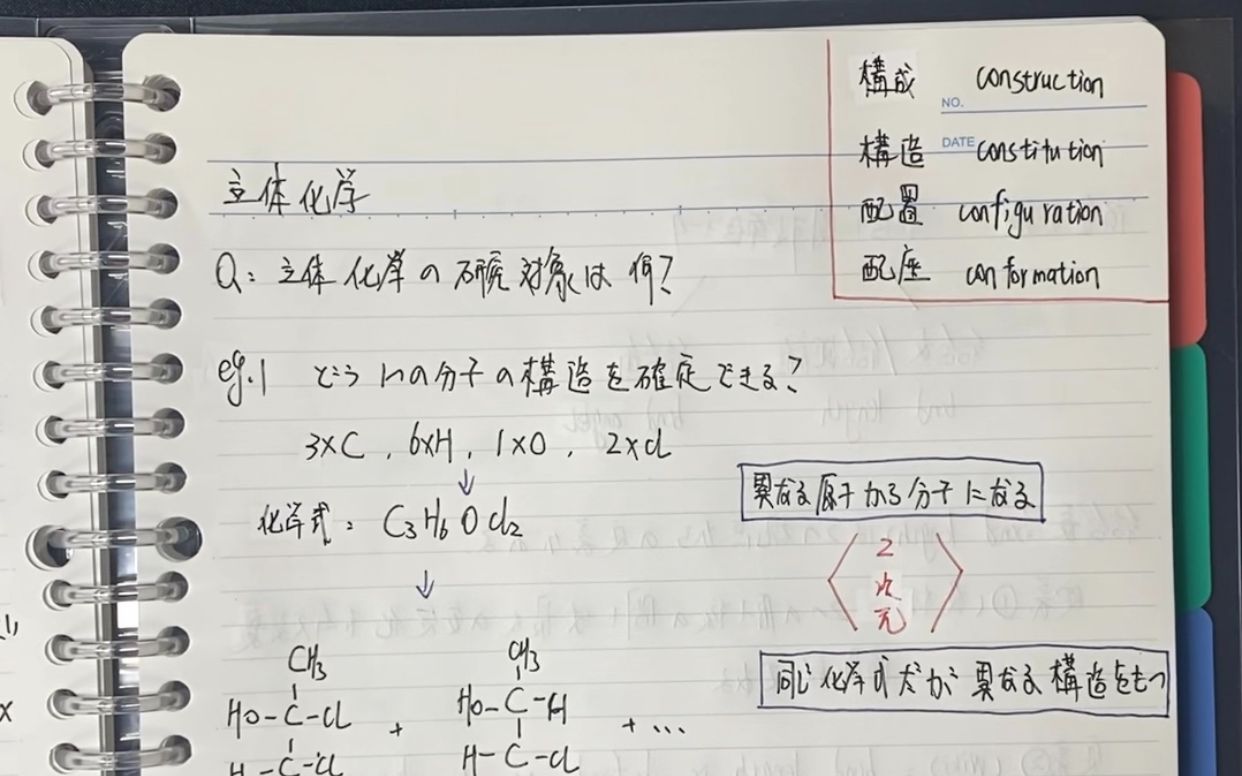 構成 construction
NO.
構造 constitution
DATE
配置 configuration
配座 conformation
立体化学
Q: 立体化学の研究対象は何?
eg.1 どう1つの分子の構造を確定できる?
3×C, 6×H, 1×O, 2×Cl
↓
化学式: C₃H₆OCl₂
↓
異なる原子から分子になる
〈2次元〉
同じ化学式だが異なる構造をもつ
CH₃ CH₃
HO-C-Cl + HO-C-H + ...
H-C-Cl H-C-Cl